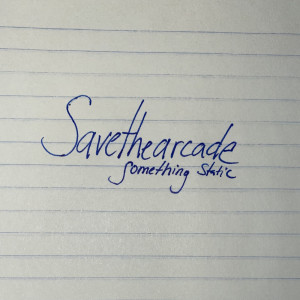 Savethearcade
Something Static